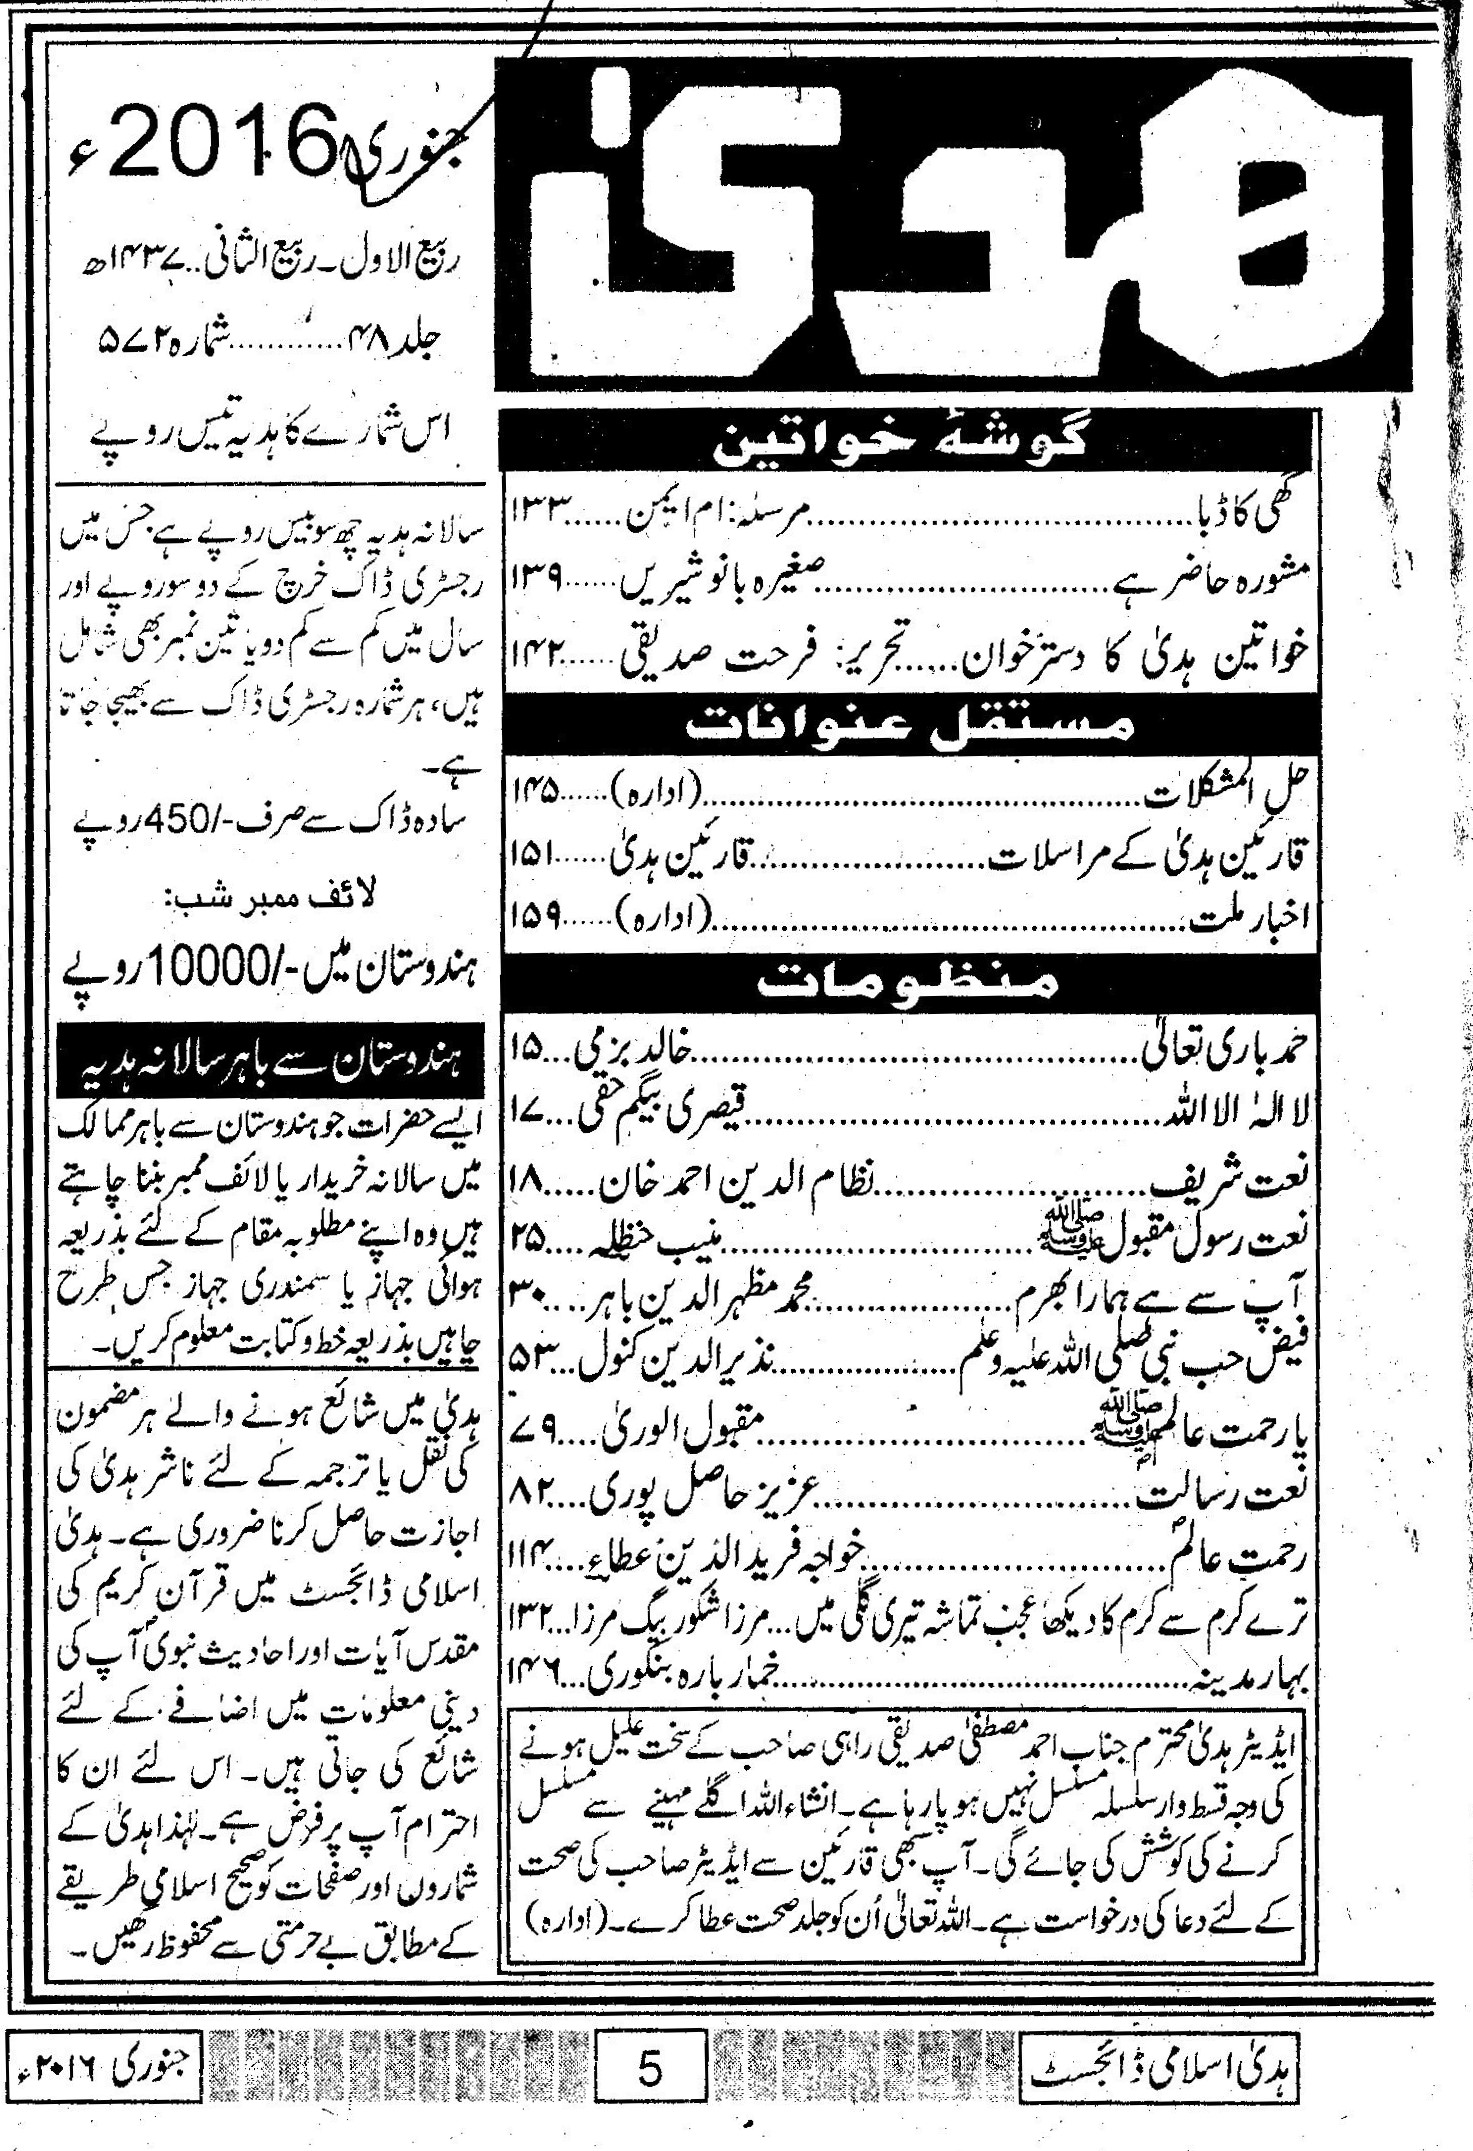 ھدیٰ
گوشۂ خواتین
گھی کا ڈبا.......................................مرسلہ: ام ایمن......۱۳۳
مشورہ حاضر ہے.............................صغیرہ بانو شیریں......۱۳۹
خواتین ہدیٰ کا دسترخوان......تحریر: فرحت صدیقی......۱۴۲
مستقل عنوانات
حل المشکلات............................................(ادارہ)......۱۴۵
قارئین ہدیٰ کے مراسلات........................قارئین ہدیٰ......۱۵۱
اخبار ملت................................................(ادارہ)......۱۵۹
منظومات
حمد باری تعالیٰ.............................................خالد بزمی...۱۵
لا الہٰ الا اللہ..........................................قیصری بیگم حقی...۱۷
نعت شریف.........................نظام الدین احمد خان.....۱۸
نعت رسول مقبول ﷺ...............................منیب حنظلہ....۲۵
آپ سے ہے ہمارا بھرم.....................محمد مظہر الدین باہر....۳۰
فیض حب نبی صلی اللہ علیہ وسلم..................نذیر الدین کنول...۵۳
یا رحمت عالم ﷺ.................................مقبول الوریٰ....۷۹
نعت رسالت................................عزیز حاصل پوری....۸۲
رحمت عالمؐ...............................خواجہ فرید الدین عطاء....۱۱۴
ترے کرم سے کرم کا دیکھا عجب تماشہ تیری گلی میں...مرزا شکور بیگ مرزا...۱۳۲
بہار مدینہ..........................................خمار بارہ بنکوری...۱۴۶
ایڈیٹر ہدیٰ محترم جناب احمد مصطفیٰ صدیقی راہی صاحب کے سخت علیل ہونے
کی وجہ قسط وار سلسلہ مسلسل نہیں ہو پا رہا ہے۔ انشاء اللہ اگلے مہینے سے مسلسل
کرنے کی کوشش کی جائے گی۔ آپ سبھی قارئین سے ایڈیٹر صاحب کی صحت
کے لئے دعا کی درخواست ہے۔ اللہ تعالیٰ اُن کو جلد صحت عطا کرے۔ (ادارہ)
جنوری 2016ء
ربیع الاول۔ ربیع الثانی..۱۴۳۷ھ
جلد ۴۸............شمارہ ۵۷۲
اس شمارے کا ہدیہ تیس روپے
سالانہ ہدیہ چھ سو بیس روپے ہے جس میں
رجسٹری ڈاک خرچ کے دو سو روپے اور
سال میں کم سے کم دو یا تین نمبر بھی شامل
ہیں، ہر شمارہ رجسٹری ڈاک سے بھیجا جاتا
ہے۔
سادہ ڈاک سے صرف -/450 روپے
لائف ممبر شب:
ہندوستان میں -/10000 روپے
ہندوستان سے باہر سالانہ ہدیہ
ایسے حضرات جو ہندوستان سے باہر ممالک
میں سالانہ خریدار یا لائف ممبر بننا چاہتے
ہیں وہ اپنے مطلوبہ مقام کے لئے بذریعہ
ہوائی جہاز یا سمندری جہاز جس طرح
چاہیں بذریعہ خط و کتابت معلوم کریں۔
ہدیٰ میں شائع ہونے والے ہر مضمون
کی نقل یا ترجمہ کے لئے ناشر ہدیٰ کی
اجازت حاصل کرنا ضروری ہے۔ ہدیٰ
اسلامی ڈائجسٹ میں قرآن کریم کی
مقدس آیات اور احادیث نبویؐ آپ کی
دینی معلومات میں اضافے کے لئے
شائع کی جاتی ہیں۔ اس لئے ان کا
احترام آپ پر فرض ہے۔ لہٰذا ہدیٰ کے
شماروں اور صفحات کو صحیح اسلامی طریقے
کے مطابق بے حرمتی سے محفوظ رکھیں۔
ہدیٰ اسلامی ڈائجسٹ
5
جنوری ۲۰۱۶ء